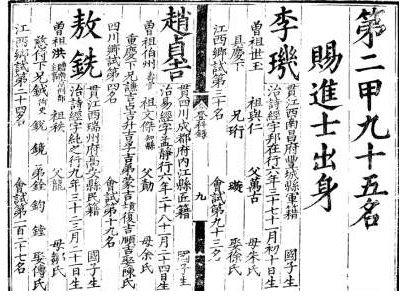 第二甲九十五名
賜進士出身
李璣
貫江西南昌府豐城縣軍籍 國子生
治詩經字邦在行八年三十七月初十日生
曾祖世王 祖與仁 父萬古 母朱氏
具慶下 兄珩 璇 娶徐氏
江西鄉試第三十名 會試第九十三名
登科錄
九
趙貞吉
貫四川成都府內江縣匠籍 國子生
治易經字孟靜行六年二十八十一月二十四日生
曾祖伯州 祖文傑 父勳 母余氏
重慶下 娶陳氏
四川鄉試第四名 會試第十九名
敖銑
貫江西瑞州府高安縣民籍 國子生
治詩經字純之行九年三十三月二十一日生
曾祖洪 祖秩 父龍 母鄒氏
慈侍下 兄鉞 銳 鏡 弟銓 鈞 鏜 娶傅氏
江西鄉試第二十四名 會試第一百二十七名